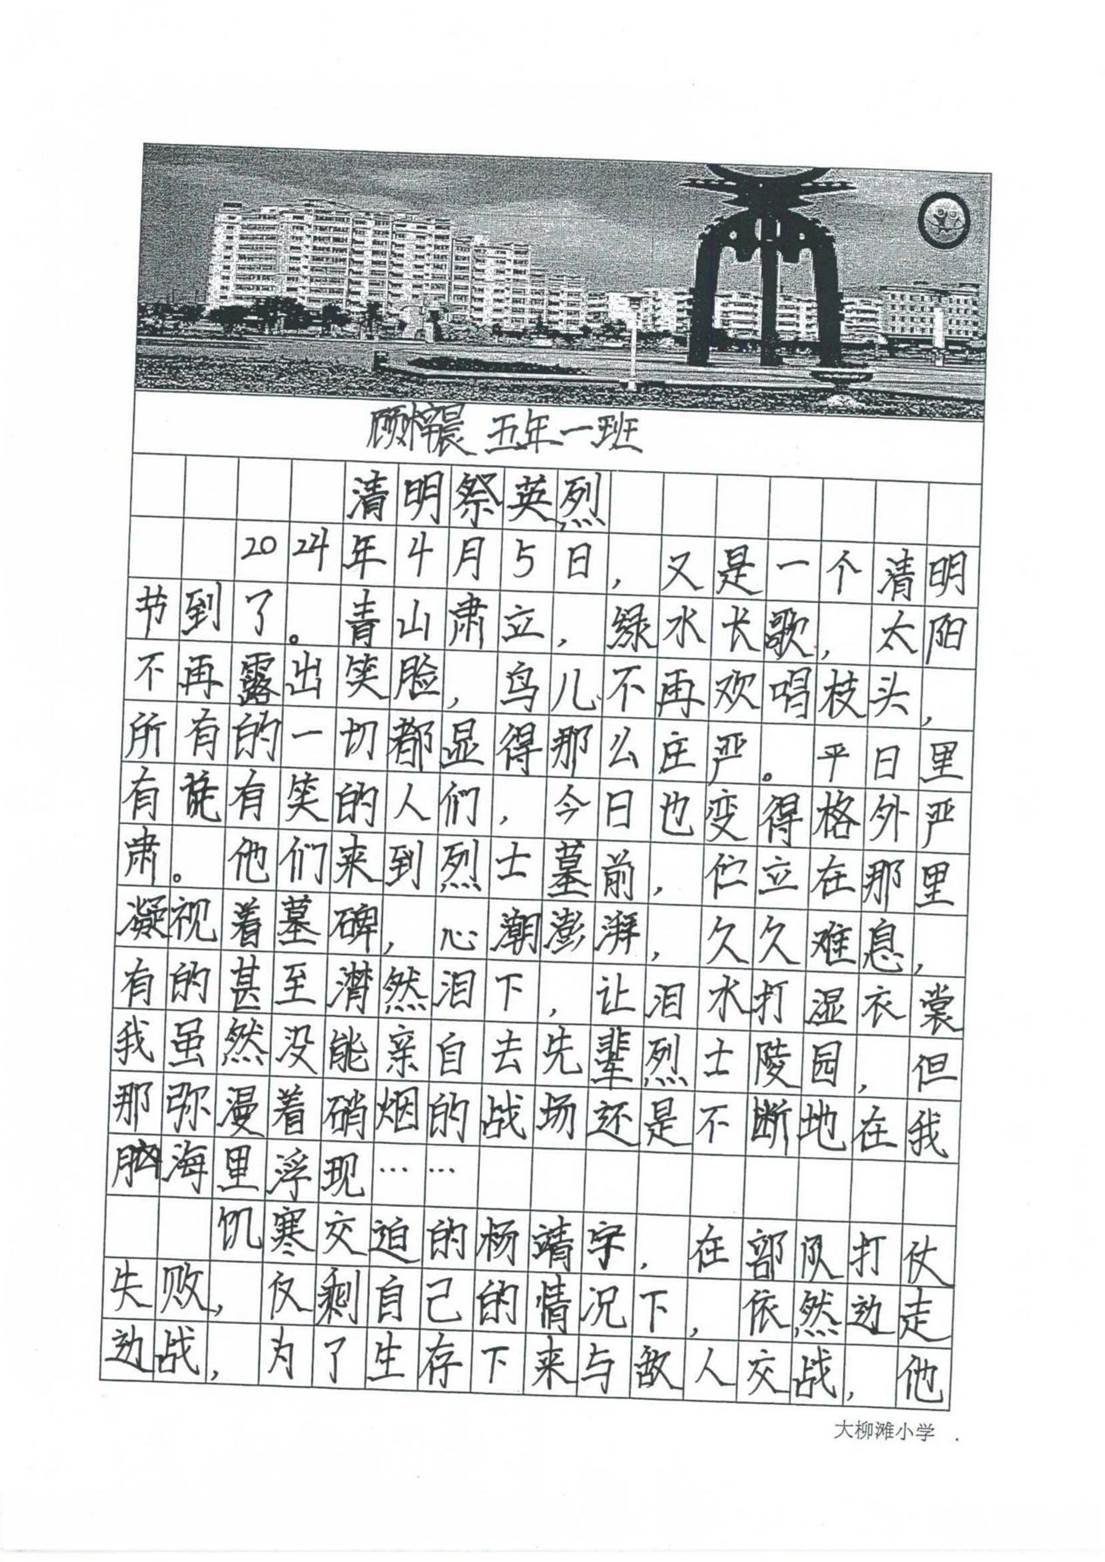 顾梓晨 五年一班
清明祭英烈
2024年4月5日，又是一个清明
节到了。青山肃立，绿水长歌，太阳
不再露出笑脸，鸟儿不再欢唱枝头，
所有的一切都显得那么庄严。平日里
有说有笑的人们，今日也变得格外严
肃。他们来到烈士墓前，伫立在那里
凝视着墓碑，心潮澎湃，久久难息，
有的甚至潸然泪下，让泪水打湿衣裳
我虽然没能亲自去先辈烈士陵园，但
那弥漫着硝烟的战场还是不断地在我
脑海里浮现……
饥寒交迫的杨靖宇，在部队打仗
失败，仅剩自己的情况下，依然边走
边战，为了生存下来与敌人交战，他
大柳滩小学